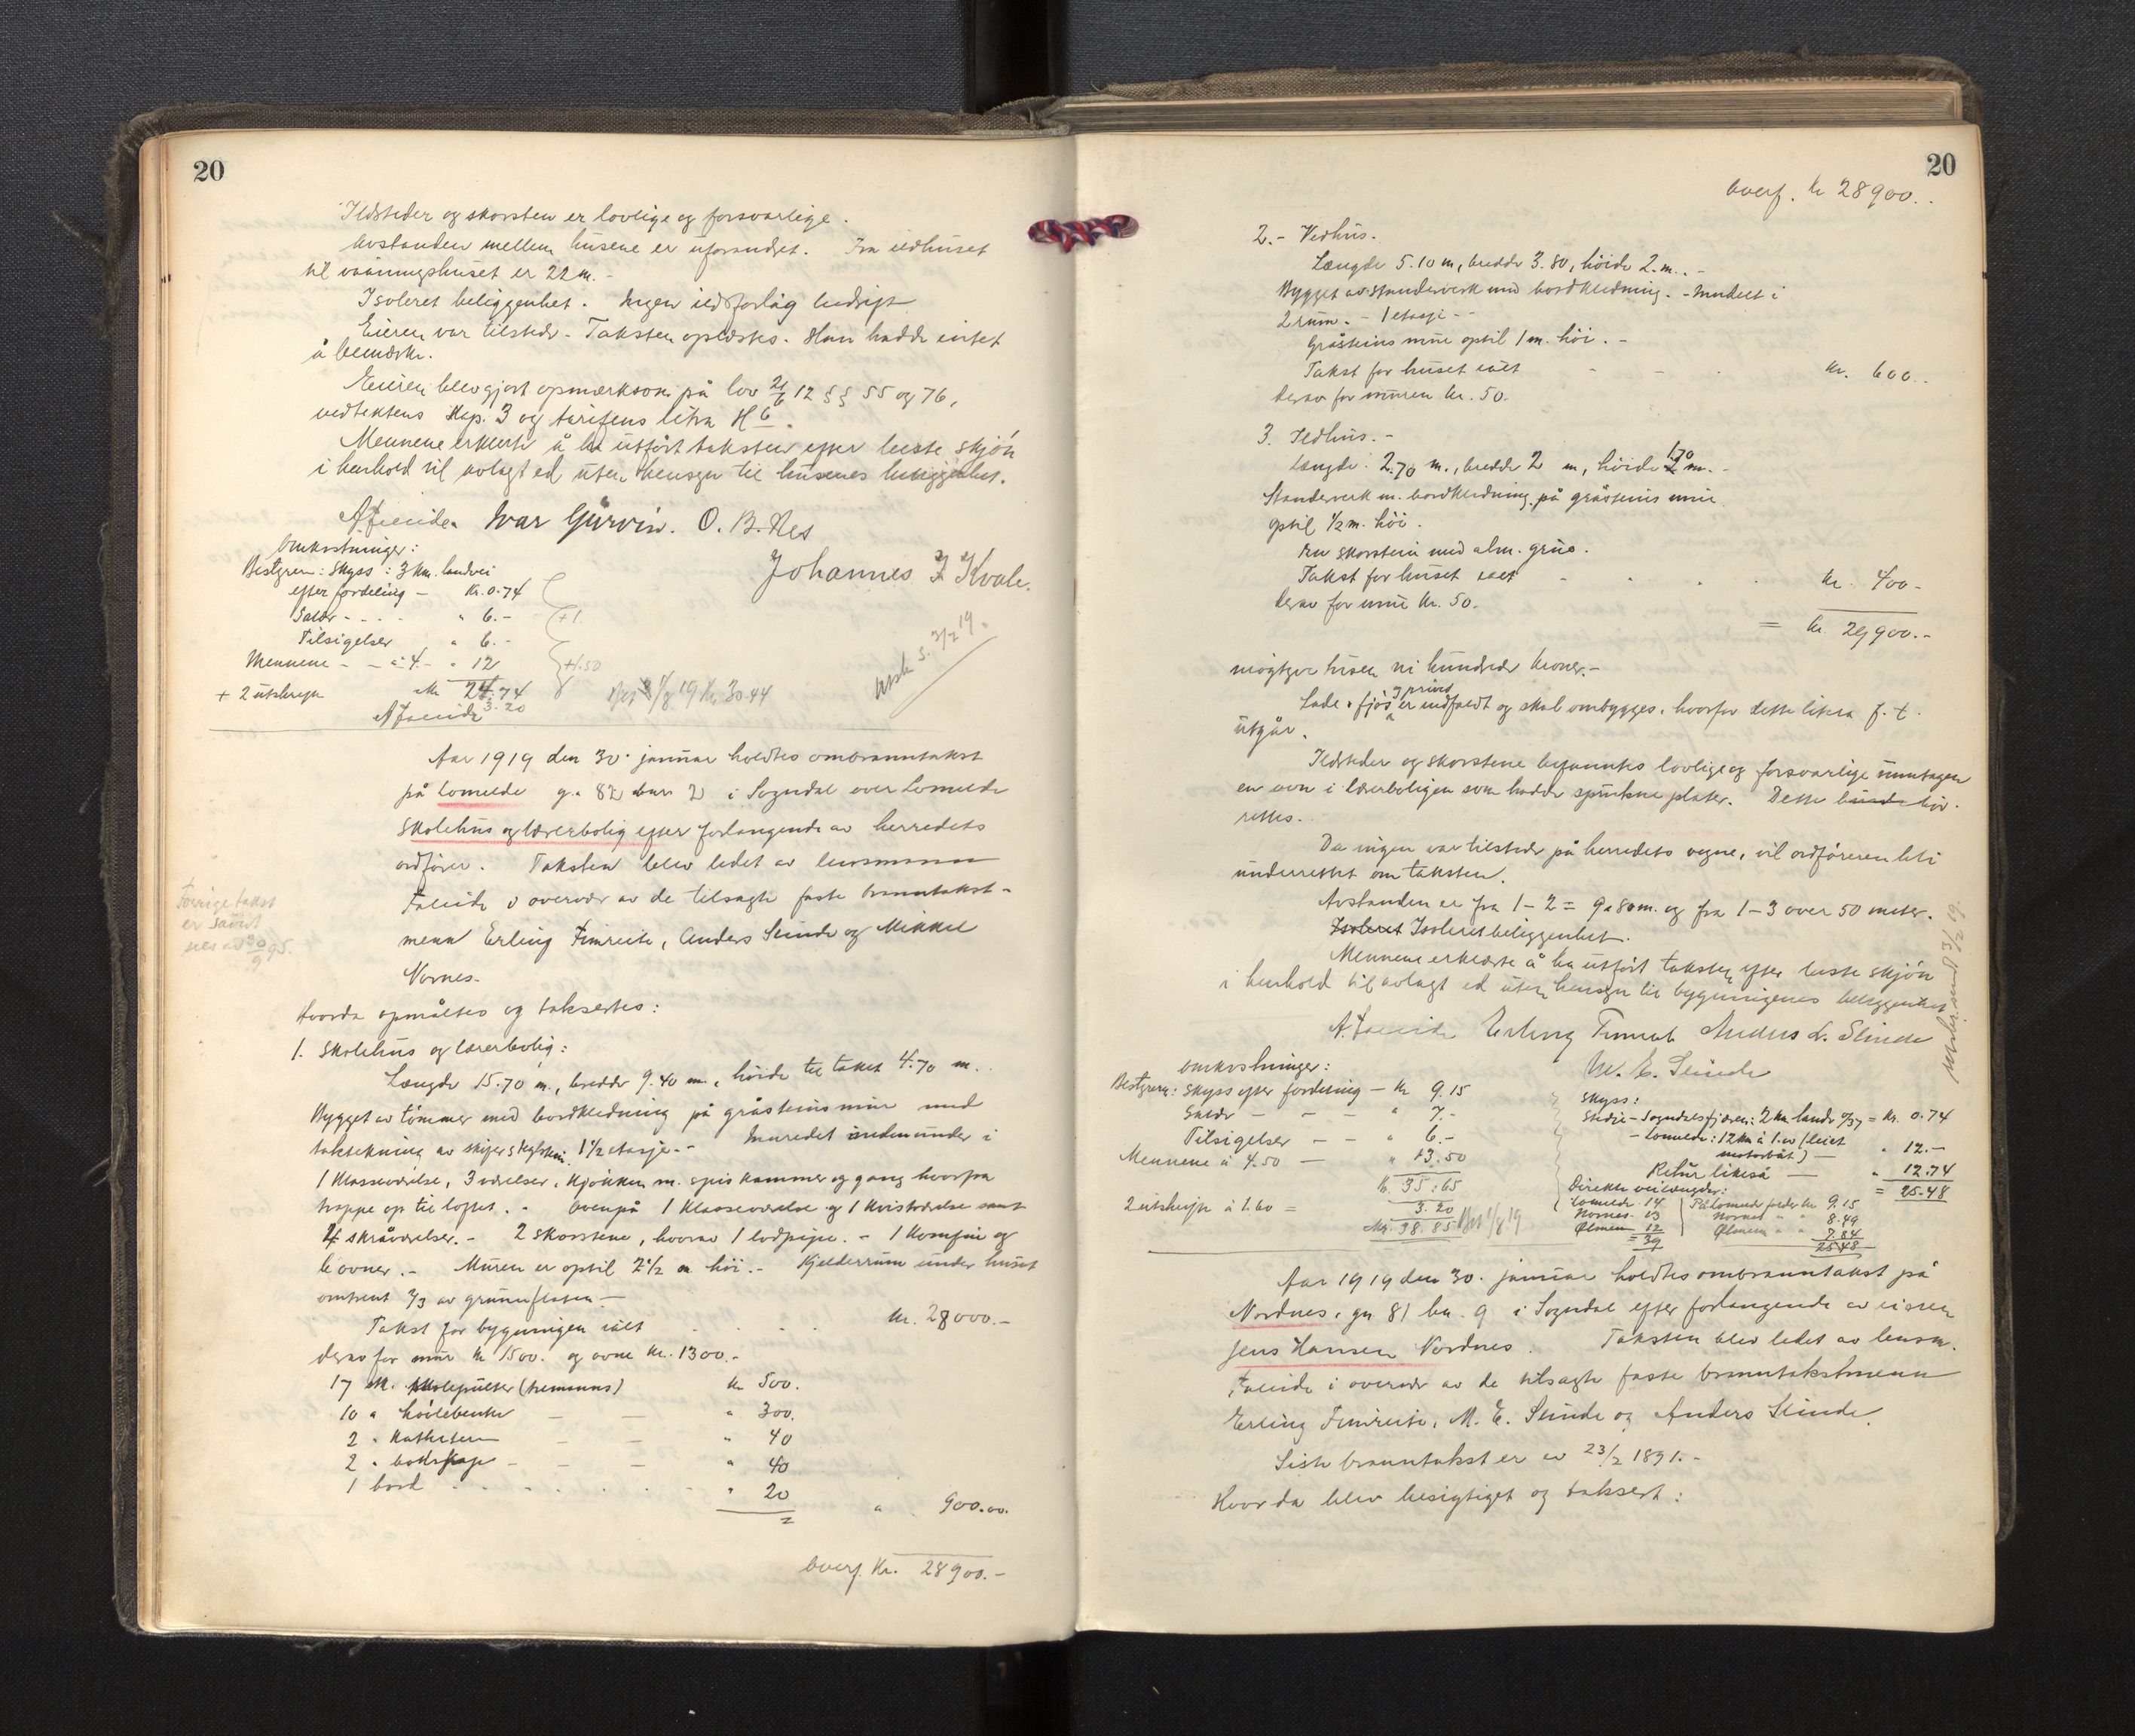 20
Ildsteder og skorsten er lovlige og forsvarlige.
Avstanden mellem husene er uforandret. Fra ildhuset
til vaaningshuset er 22 m.-
Isoleret beliggenhet. Ingen ildsfarlig bedrift.
Eieren var tilstede - Taksten oplæstes. Han hadde intet
å bemerke.
Eieren blev gjort opmærksom på lov 21/6 12 §§ 55 og 76,
vedtektens Kap. 3 og tarifens litra H 6.
Mennene erklærte å ha utført taksten efter beste skjön
i henhold til avlagt ed uten hensyn til husenes beliggenhet.
A. Faleide. Ivar Gurvin. O. B. Nes
Johannes J Kvale.
Omkostninger:
Bestyreren: Skyss: 3 km. landvei
efter fordeling - Kr. 0.74
Salær - - - " 6.-
Tilsigelser " 6.-
+1
Mennene - - à 4.- " 12
+1.50
Kr 24.74
+ 2 utskrifter 3.20
A Faleide
19 Kr. 30.44
Utsk. s. 3/2 19.
Aar 1919 den 30. januar holdtes ombranntakst
på Lomelde g. 82 bnr 2 i Sogndal over Lomelde
skolehus og lærerbolig efter forlangende av herredets
ordfører. Taksten blev ledet av lensmann
Faleide i overvær av de tilsagte faste branntakst-
menn Erling Fimreite, Anders Slinde og Mikkel
Nornes.
Forrige takst
er savnt
Hvorda opmåltes og taksertes:
1. Skolehus og lærerbolig:
Længde 15.70 m., bredde 9.40 m., höide til taket 4.70 m..
Bygget av tömmer med bordklædning på gråsteinsmur med
taktekning av skifer 1 1/2 etasje.- Innredet nedenunder i
1 Klasseværelse, 3 værelser, Kjökken m. spiskammer og gang hvorfra
trappe op til loftet. - Ovenpå 1 Klasseværelse og 1 Kvistværelse samt
4 skråværelser.- 2 skorstene, hvorav 1 lodpipe. - 1 Komfur og
6 ovner.- Muren er optil 2 1/2 m höi.- Kjelderrum under huset
omtrent 2/3 av grunnflaten -
Takst for bygningen ialt . . . . Kr. 28000.-
derav for mur kr 1500. og ovne kr. 1300.-
17 stk. skolepulter (tremanns) kr 500.
10 " hövlebenker - - " 300.
2 " Kathetere - - " 40
2 " bokskape - - - " 40
1 bord . . . . . " 20
= " 900.00.
Overf. Kr. 28900.-
20
Overf. kr 28900..
2.- Vedhus.
Længde 5.10 m, bredde 3.80, höide 2.m..-
Bygget av standerverk med bordklædning. - Inndelt i
2 rum. - 1 etasje - -
Gråsteins mur optil 1 m. höi. -
Takst for huset ialt - - . kr. 600..
derav for muren kr. 50.
3. Ildhus. -
Længde: 2.70 m., bredde 2 m, höide 1.70 m. -
Standerverk m. bordklædning på gråsteins mur
optil 1/2 m. höi.
En skorstein med alm. grue.
Takst for huset ialt - . . . kr. 400-
derav for mur kr. 50.
= kr. 29900.-
niogtyve tusen ni hundrede kroner.-
Lade, fjös og prived er nedfaldt og skal ombygges, hvorfor dette likesaa f. t.
utgår.
Ildsteder og skorstene befanntes lovlige og forsvarlige unntagen
en ovn i lærerboligen som hadde sprukne plater. Dette burde bör
rettes.
Da ingen var tilstede på herredets vegne, vil ordföreren bli
underrettet om taksten.
Avstanden er fra 1 - 2 = 9.80 m. og fra 1 - 3 over 50 meter.
Isoleret Isoleret beliggenhet.
Mennene erklærte å ha utfört taksten efter beste skjön
i henhold til avlagt ed uten hensyn til bygningenes beliggenhet.
A. Faleide Erling Fimreite Anders L. Slinde
M. E. Slinde
Omkostninger:
Bestyreren: Skyss efter fordeling - kr 9.15
Salær - - - " 7.-
Tilsigelser - - " 6.-
Mennene à 4.50 - " 13.50
K. 35.65
2 utskrifter à 1.60 = 3.20
Kr. 38.85
Skyss:
Stedje - Sogndalsfjæren: 2 km landv 0/37 = kr. 0.74
- Lomelde: 12 km à 1.00 (leiet
motorbåt) - " 12.-
Retur likeså - " 12.74
= 25.48
Direkte veilængder:
Lomelde - 14 På Lomelde falder kr 9.15
Nornes - 13 Nornes " " 8.49
Ölmen - 12 Ölmen " " 7.84
= 39 25.48
Aar 1919 den 30. januar holdtes ombranntakst på
Nordnes, gn 81 bn. 9 i Sogndal efter forlangende av eieren
Jens Hansen Nordnes. Taksten blev ledet av lensm.
Faleide i overvær av de tilsagte faste branntakstmenn
Erling Fimreite, M. E. Slinde og Anders Slinde.
Siste branntakst er av 23/2 1891.-
Hvorda blev besigtiget og taksert: